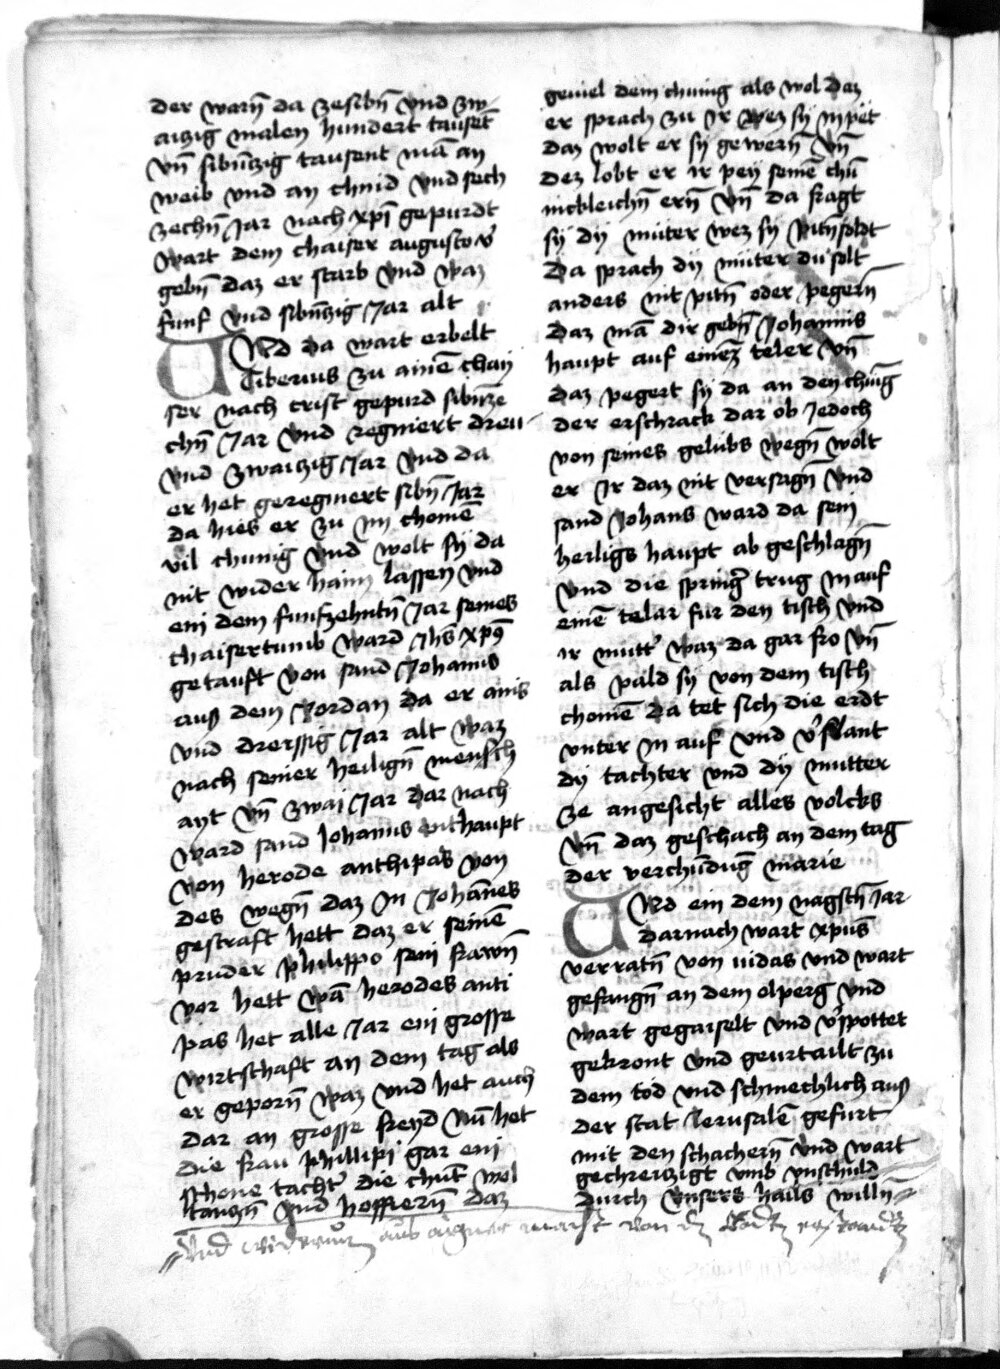 der warn̄ da zesibn̄ vnd zw
aizig malen hundert tauset
vn̄ sibn̄czig tausent mā an
weib vnd an chind vnd sech
zechn̄ Jar nach xp̄i gepurdt
wart dem chaiser augusto v̓
gebn̄ daz er starb vnd waz
funf vnd sibn̄czig Jar alt
VNd da wart erbelt
Tiberius zu ainē chay
ser nach crist gepurd sibn̄ze
chn̄ Jar vnd regniert dreu
vnd zwaiczig Jar vnd da
er het geregniert sibn̄ Jar
da hies er zu im chomē
vil chunig vnd wolt sÿ da
nit wider haim lassen vnd
ein dem funfzehntn̄ Jar seines
chaisertumb ward Jhs̄ xp̄s
getauft von sand Johanns
auß dem Jordan da er ains
vnd dreissig Jar alt waz
nach seiner heilign̄ mensch
ayt vn̄ zwai Jar dar nach
ward sand Johanns enthaupt
von herode anthipas von
des wegn̄ daz In Johānes
gestraft hett daz er seinē
pruder philippo sein frawn̄
vor hett wā herodes anti
pas het alle Jar ein grosse
wirtschaft an dem tag als
er geporn̄ waz vnd het auch
dar an grosse freyd Nū het
die frau phillipi gar ein
schone tachter die chūt wol
tanczn̄ vnd hoffiern̄ daz
geuiel dem chunig als wol daz
er sprach zu ir wez sÿ in pët
daz wolt er sÿ gewern̄ vn̄
dez lobt er ir peÿ seinē chū
nickleichn̄ ern̄ vn̄ da fragt
sÿ dÿ muter wez sÿ pitn̄ soldt
Da sprach dÿ muter du solt
anders nit pitn̄ oder pegern̄
daz mā dir gebn̄ Johannis
haupt auf einez teler vn̄
daz pegert sÿ da an den chūig
der erschrack dar ob Jedoch
von seines gelubs wegn̄ wolt
er ir daz nit versagn̄ vnd
sand Johans ward da sein
heiligs haupt ab geschlagn̄
vnd die springer̄ trug in auf
einē telar fur den tisch vnd
ir mutt̓ waz da gar fro vn̄
als pald sÿ von dem tisch
chomē da tet sich die erdt
vnter in auf vnd v̓slant
dÿ tachter vnd dÿ mutter
ze angesicht alles volcks
vn̄ daz geschach an dem tag
der verchūdūg marie
VNd ein dem nagsch̄ Jar
darnach wart xp̄us
verratn̄ von iudas vnd wart
gefangn̄ an dem olperg vnd
wart gegaiselt vnd v̓spottet
gekront vnd geurtailt zu
dem tod vnd schmechlich auß
der stat Jerusalē gefurt
mit den schachern̄ vnd wart
gechreiczigt vmb vnschuld
Durch vnsers hails willn̄